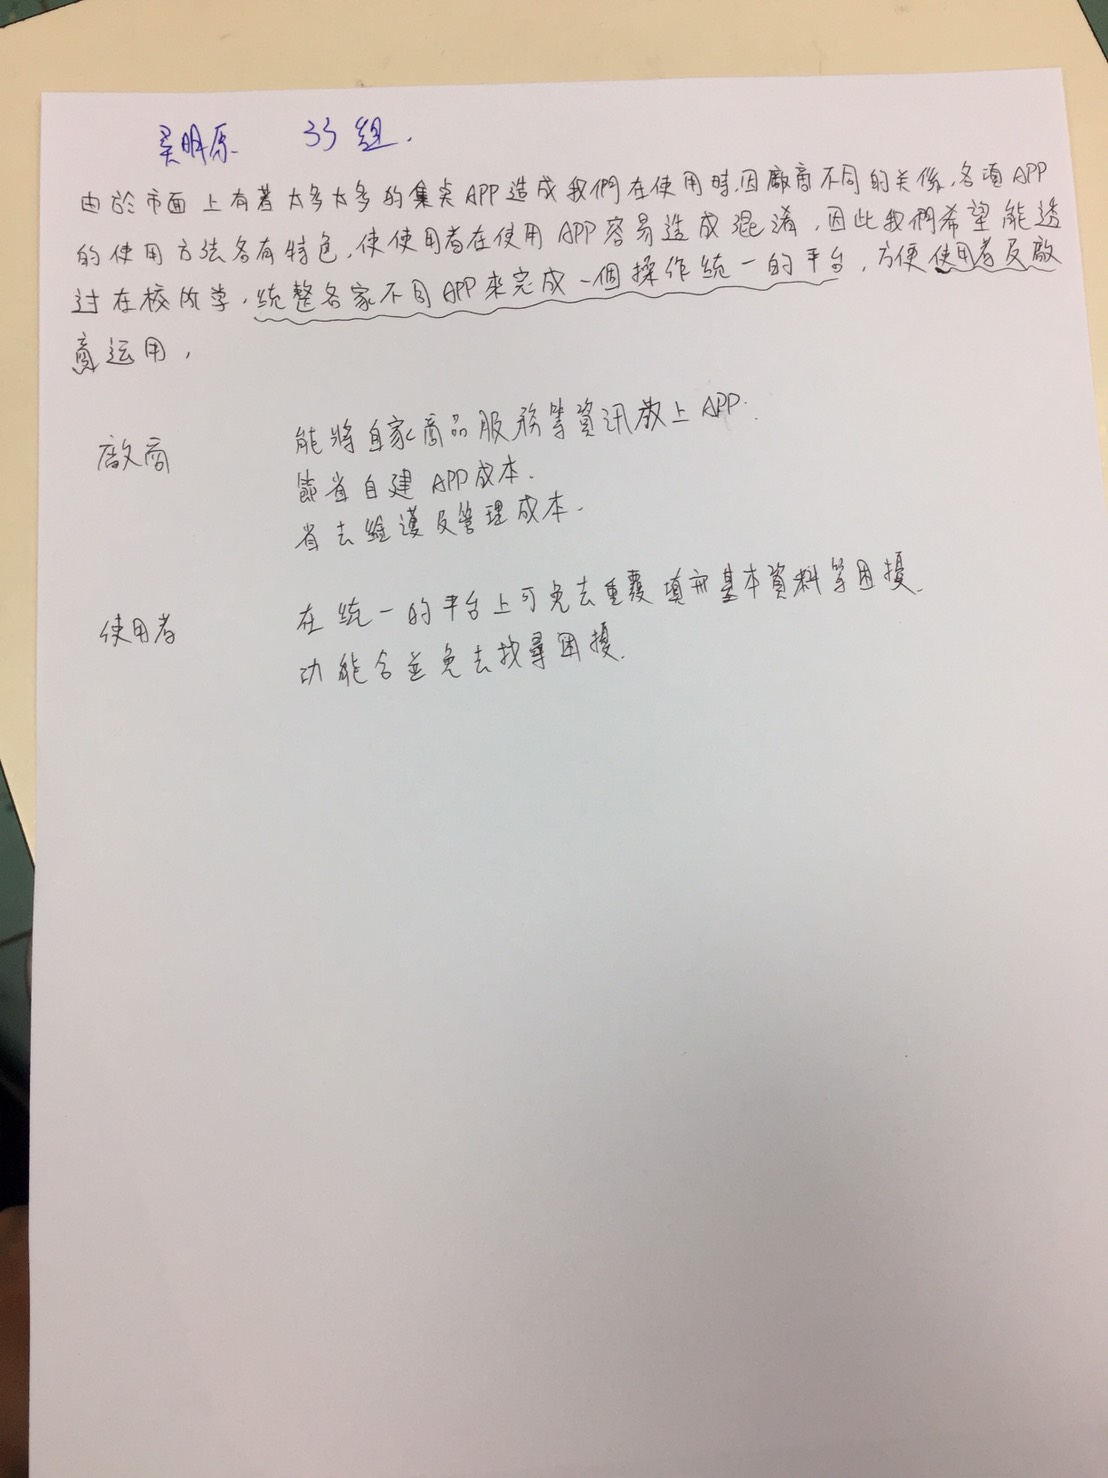 吳明原 33組.
由於市面上有著太多太多的集点APP造成我們在使用時,因廠商不同的关係,各項APP
的使用方法各有特色,使使用者在使用APP容易造成混淆,因此我們希望能透
过在校所学,統整各家不同APP來完成一個操作統一的平台,方便使用者及廠
商运用,
廠商 能將自家商品服務等資訊放上APP.
節省自建APP成本.
省去維護及管理成本.
使用者 在統一的平台上可免去重覆填寫基本資料等困擾.
功能合並免去找尋困擾.